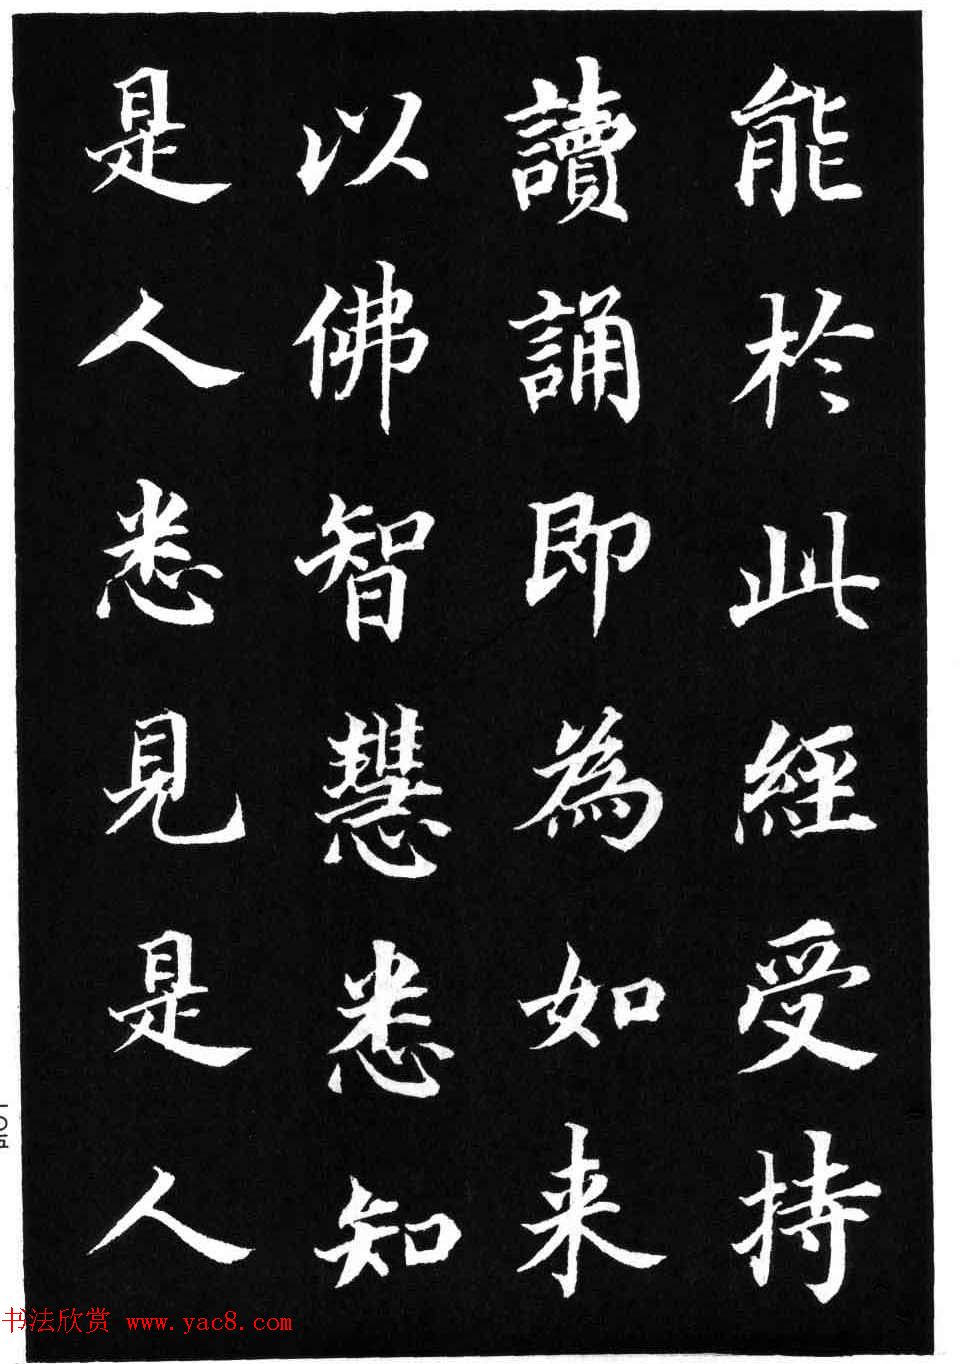 能於此經受持
讀誦即為如来
以佛智慧悉知
是人悉見是人
书法欣赏 www.yac8.com